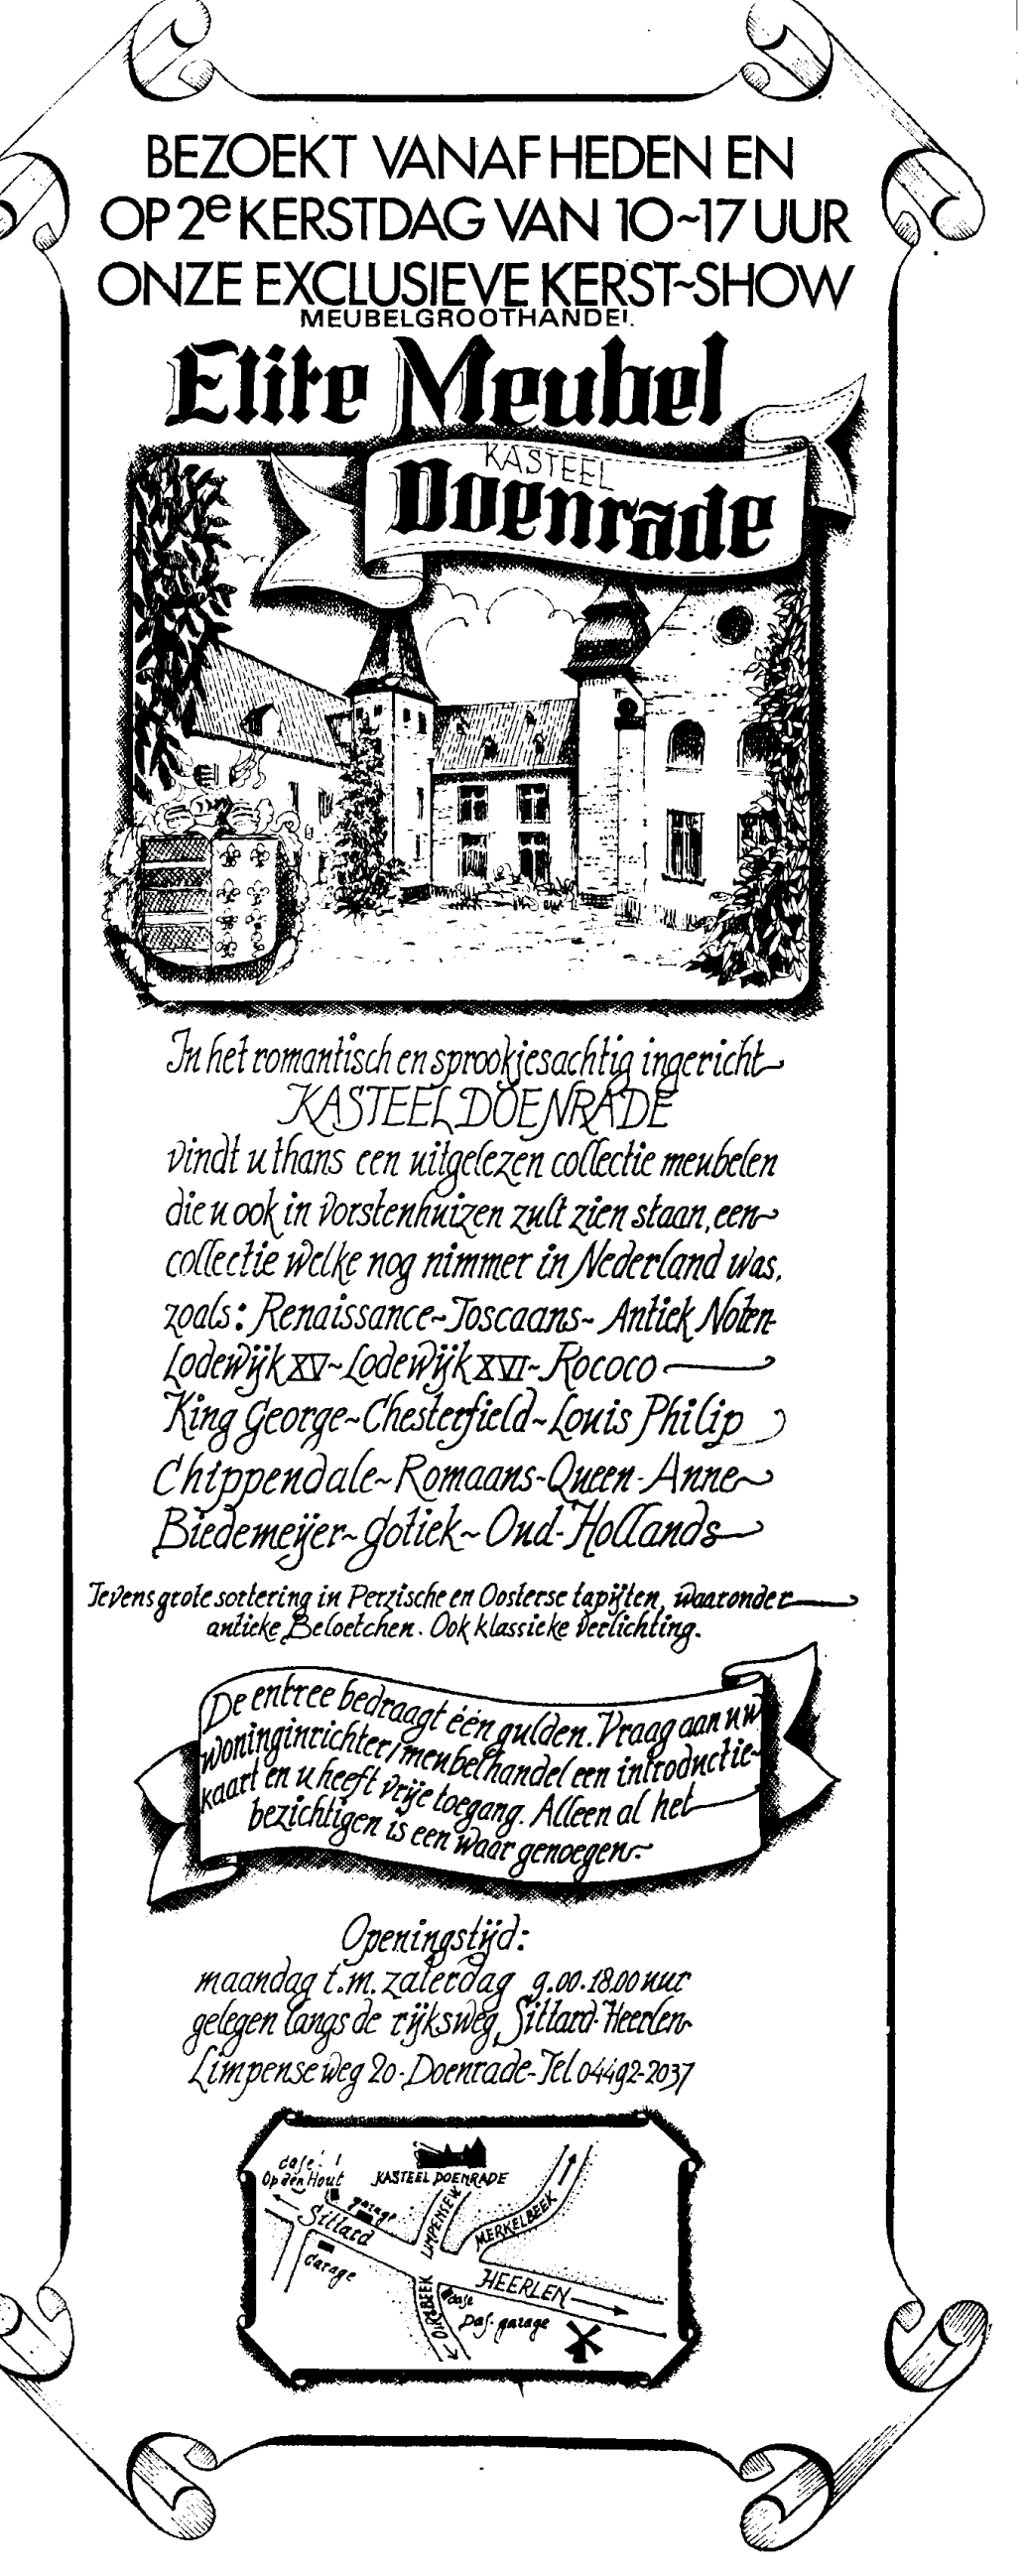 BEZOEKT VANAF HEDEN EN
OP 2e KERSTDAG VAN 10~17 UUR
ONZE EXCLUSIEVE KERST~SHOW
MEUBELGROOTHANDEL
Elite Meubel
KASTEEL
Doenrade
In het romantisch en sprookjesachtig ingericht
KASTEEL DOENRADE
vindt u thans een uitgelezen collectie meubelen
die u ook in vorstenhuizen zult zien staan, een
collectie welke nog nimmer in Nederland was,
zoals: Renaissance~Toscaans~Antiek Noten-
Lodewijk XV~Lodewijk XVI~Rococo
King George~Chesterfield~Louis Philip
Chippendale~Romaans-Queen-Anne
Biedemeijer~Gotiek~Oud-Hollands
Tevens grote sortering in Perzische en Oosterse tapijten, waaronder
antieke Beloetchen. Ook klassieke verlichting.
De entree bedraagt één gulden. Vraag aan uw
woninginrichter/meubelhandel een introductie-
kaart en u heeft vrije toegang. Alleen al het
bezichtigen is een waar genoegen.
Openingstijd:
maandag t.m. zaterdag 9.00-18.00 uur
gelegen langs de rijksweg, Sittard-Heerlen
Limpenseweg 20-Doenrade-Tel 04492-2037
Op den Hout
KASTEEL DOENRADE
garage
Sittard
Garage
LIMPENSEW
MERKELBEEK
HEERLEN
DIRSBEEK
Daf-garage